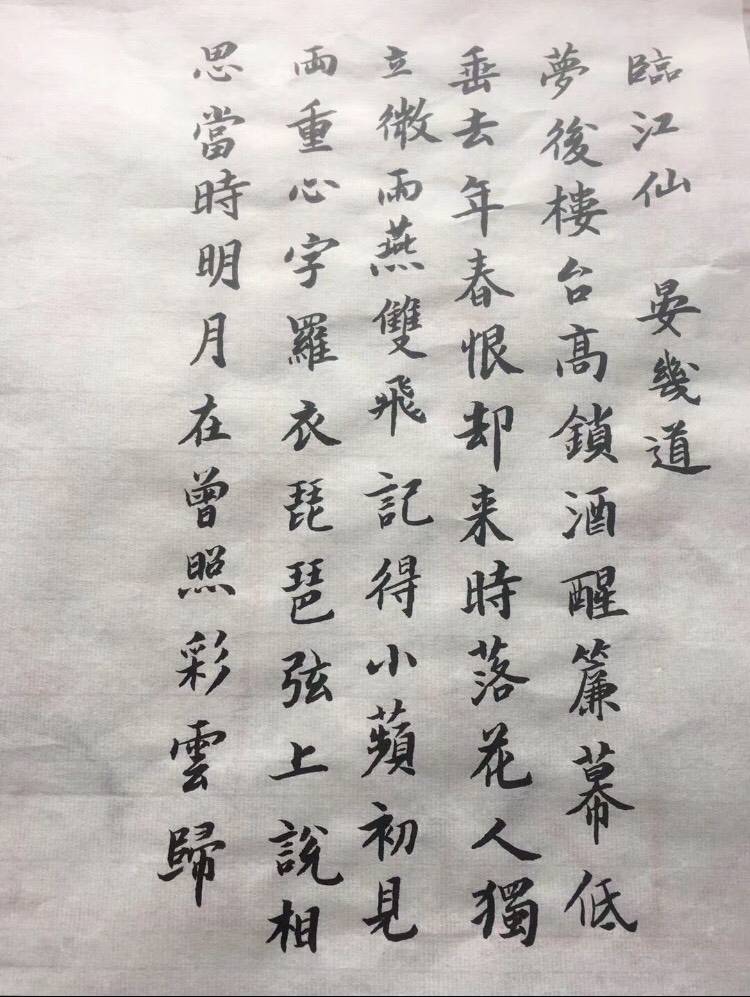 臨江仙 晏幾道
夢後樓台高鎖酒醒簾幕低
垂去年春恨却来時落花人獨
立微雨燕雙飛記得小蘋初見
兩重心字羅衣琵琶弦上說相
思當時明月在曾照彩雲歸